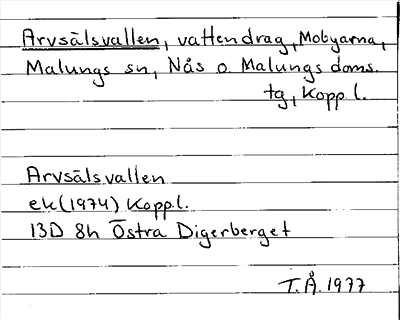 Arvsälsvallen, vattendrag, Mobyarna,
Malungs sn, Nås o. Malungs doms.
tg, Kopp l.
Arvsälsvallen
ek (1974) Kopp l.
13D 8h Östra Digerberget
T.Å. 1977